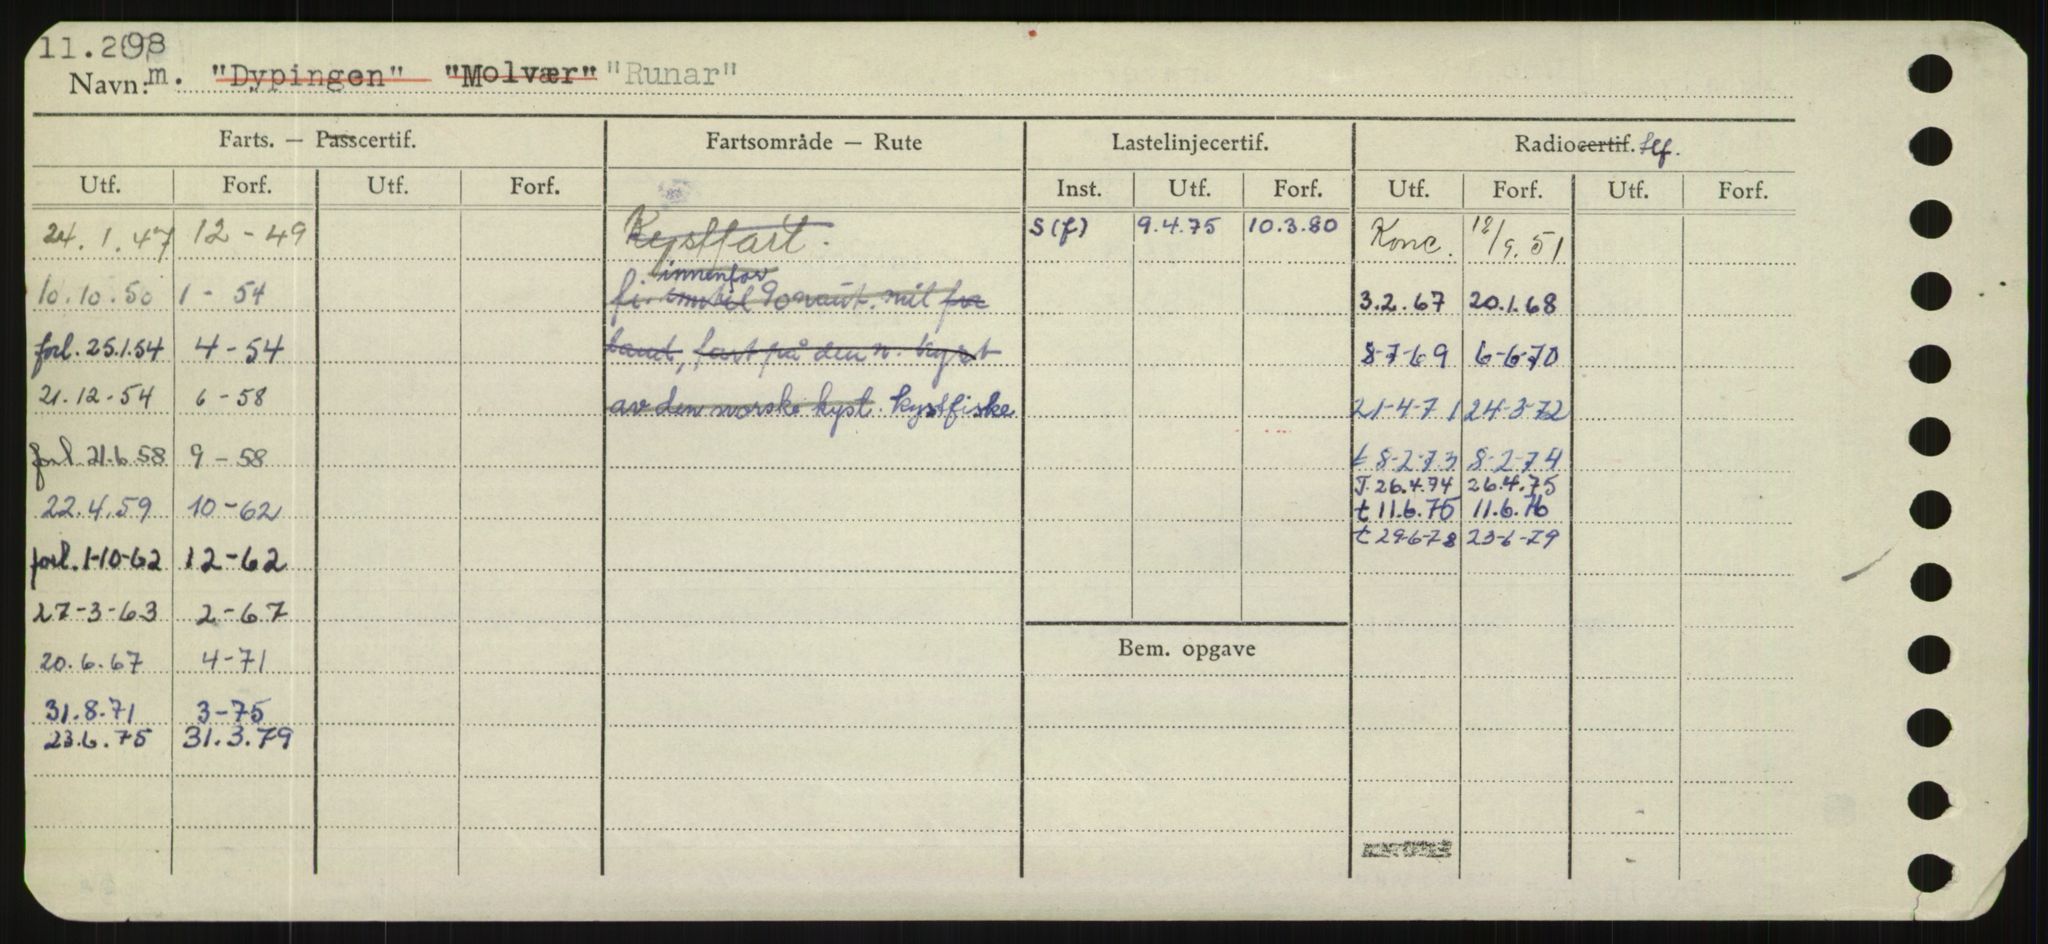 11.298
Navn: m. "Dypingen" "Molvær" "Runar"
Farts. — Passcertif. Fartsområde — Rute Lastelinjecertif. Radiocertif. tlf.
Utf. Forf. Utf. Forf. Inst. Utf. Forf. Utf. Forf. Utf. Forf.
24.1.47 12-49 Kystfart. S(f) 9.4.75 10.3.80 Konc. 12/9.51
innenfor
10.10.50 1-54 90 naut. mil fra 3.2.67 20.1.68
forl. 25.1.54 4-54 land, fart på den n. kyst 8-7-69 6-6-70
21.12-54 6-58 av den norske kyst. Kystfiske 21-4-71 24-3-72
forl 21.6.58 9-58 t 8-2-73 8-2-74
T. 26.4.74 26.4.75
22.4.59 10-62 t 11.6.75 11.6.76
t 29-6-78 23-6-79
forl. 1-10-62 12-62
27-3-63 2-67
Bem. opgave
20.6.67 4-71
31.8.71 3-75
23.6.75 31.3.79